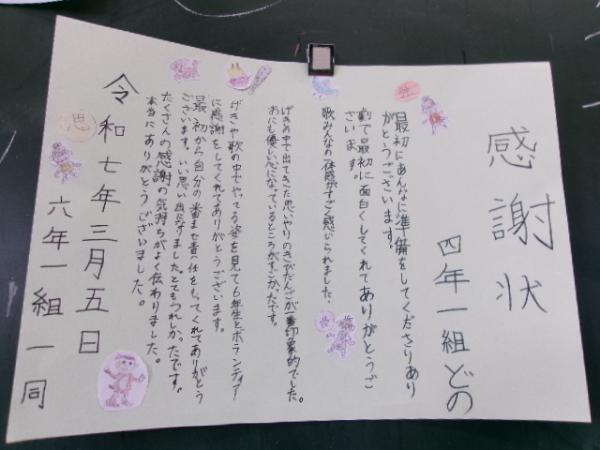 感謝状
四年一組どの
最初にあんなに準備をしてくださりあり
がとうございます。
劇で最初に面白くしてくれてありがとうご
ざいます。
歌みんなの一体感がすごく感じられました。
げきの中で出てきた思いやりのきびだんごが一番印象的でした。
おにも優しい心になっているところがすごかったです。
げきや歌の中でやってる姿を見ても6年生とボランティア
に感謝をしてくれてありがとうございます。
最初から自分の番まで責任をもってくれてありがとう
ございます。いい思い出になりました。とてもうれしかったです。
たくさんの感謝の気持ちがよく伝わりました。
本当にありがとうございました。
令和七年三月五日
六年一組一同
思